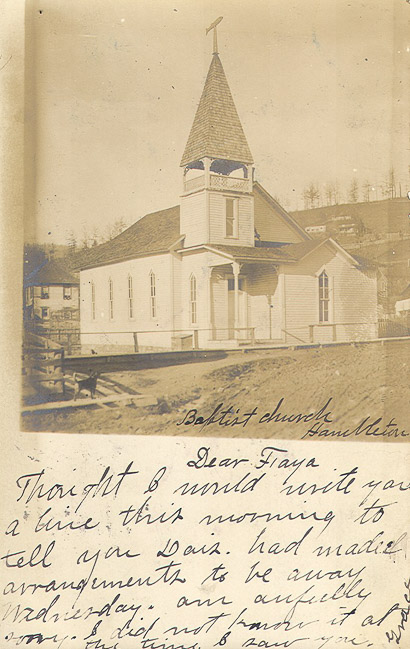 Baptist church
Hambleton
Dear Faya
Thought I would write you
a line this morning to
tell you Dais. had made
arrangements to be away
Wednesday. am awfully
sorry. I did not know it at
the time I saw you.
Grace